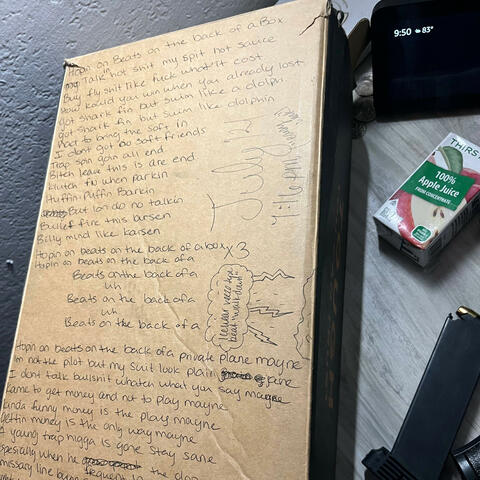 Hopin on Beats on the back of a Box
Talk in hot shit my spit hot sauce
Buy fly shit like fuck what it cost
how would you win when you already lost
got shark fin but swim like a dolph
got shark fin but swim like dolphin
Had to bring the soft in
I dont got no soft friends
Trap spin goin all end
Bitch leave this is are end
Klutch tu when parkin
Huffin Puffin Barkin
But lors do no talkin
Bullet fire this bursen
Billy mind like kaisen
Hopin on beats on the back of a box x3
Hopin on beats on the back of a
Beats on the back of a
uh
Beats on the back of a
uh
Beats on the back of a
July 21
Title
beat
Hopin on beats on the back of a private plane mayne
Im not the plot but my suit look plain
I dont talk bullshit whatch what you say mayne
Came to get money and not to play mayne
kinda funny money is the plays mayne
gettin money is the only way mayne
A young trap nigga is gone stay sane
especially when he
frequent in
missary line
9:50 83°
THIRS
100%
Apple Juice
FROM CONCENTRATE